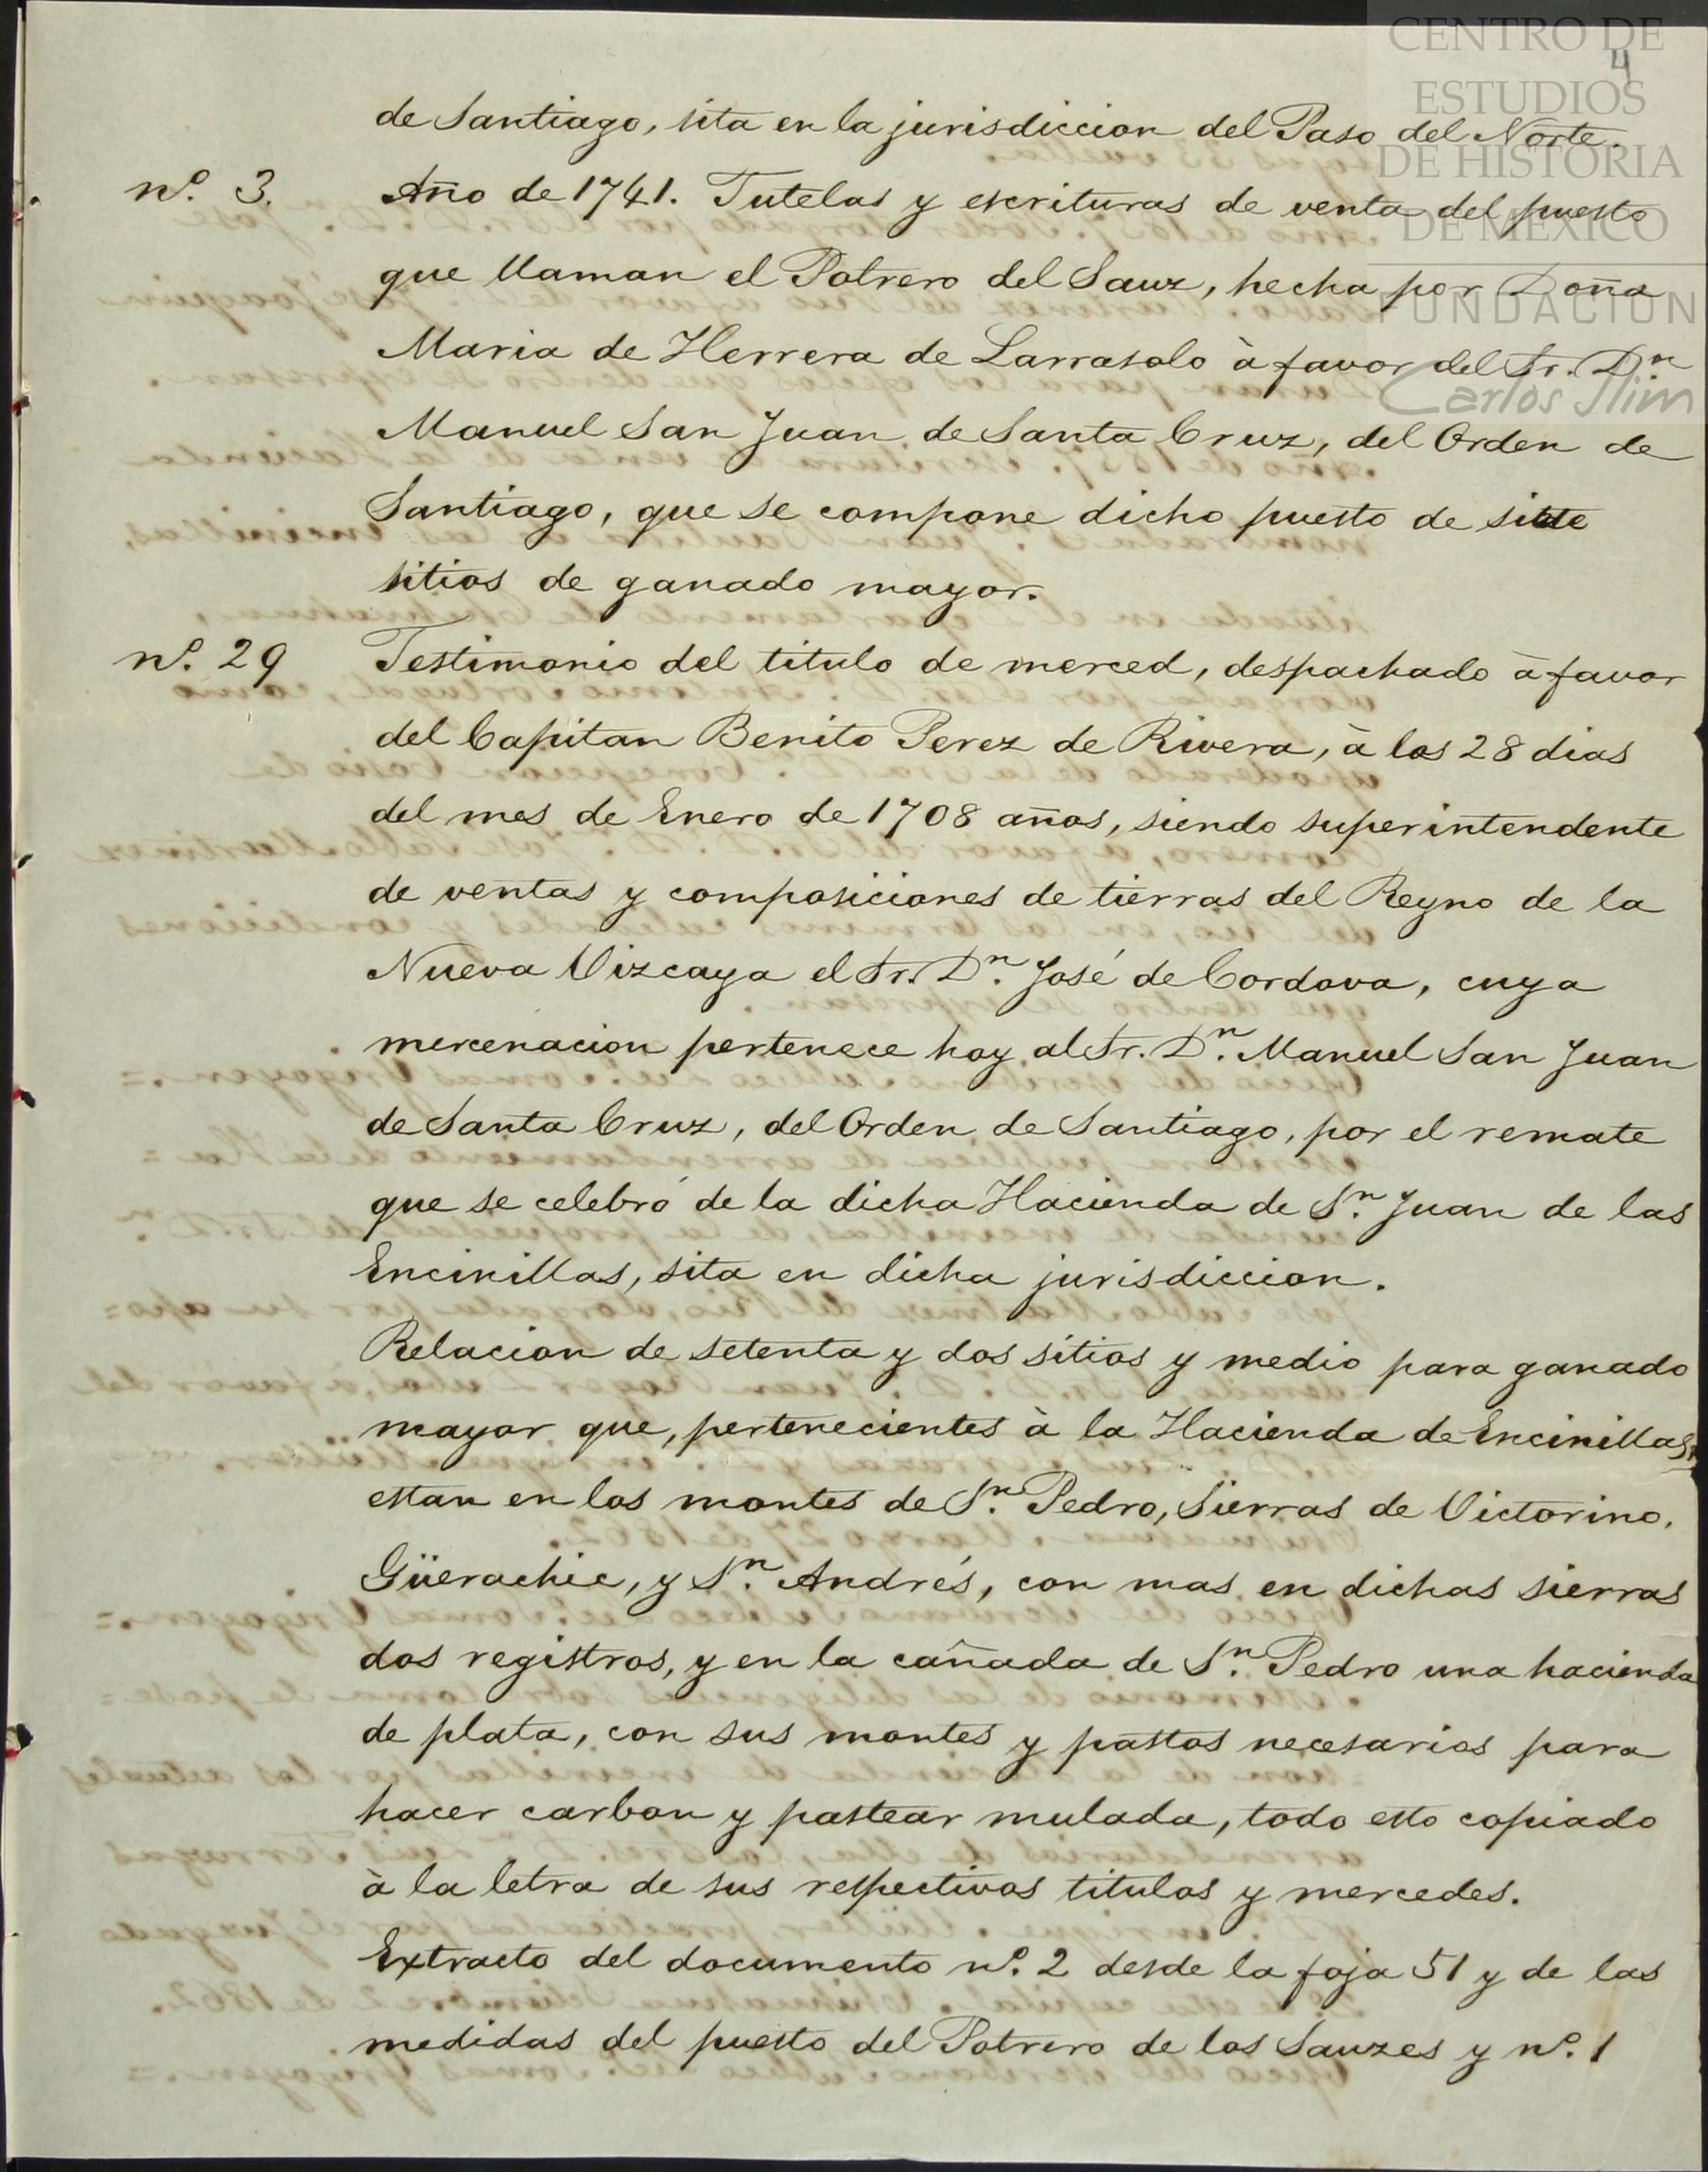 CENTRO DE
ESTUDIOS
DE HISTORIA
DE MÉXICO
FUNDACIÓN
Carlos Slim
4
de Santiago, sita en la jurisdiccion del Paso del Norte.
nº. 3. Año de 1741. Tutelas y escrituras de venta del puesto
que llaman el Potrero del Sauz, hecha por Doña
Maria de Herrera de Larrasolo à favor del Sr. Dn
Manuel San Juan de Santa Cruz, del Orden de
Santiago, que se compone dicho puesto de siete
sitios de ganado mayor.
nº. 29 Testimonio del titulo de merced, despachado à favor
del Capitan Benito Perez de Rivera, à los 28 dias
del mes de Enero de 1708 años, siendo superintendente
de ventas y composiciones de tierras del Reyno de la
Nueva Vizcaya el Sr. Dn. José de Cordova, cuya
mercenacion pertenece hoy al Sr. Dn. Manuel San Juan
de Santa Cruz, del Orden de Santiago, por el remate
que se celebró de la dicha Hacienda de Sn. Juan de las
Encinillas, sita en dicha jurisdiccion.
Relacion de setenta y dos sitios y medio para ganado
mayor que, pertenecientes à la Hacienda de Encinillas,
estan en los montes de Sn. Pedro, Sierras de Victorino,
Güerachic, y Sn. Andrés, con mas en dichas sierras
dos registros, y en la cañada de Sn. Pedro una hacienda
de plata, con sus montes y pastos necesarios para
hacer carbon y pastear mulada, todo esto copiado
à la letra de sus respectivos titulos y mercedes.
Extracto del documento nº. 2 desde la foja 51 y de las
medidas del puesto del Potrero de los Sauzes y nº. 1